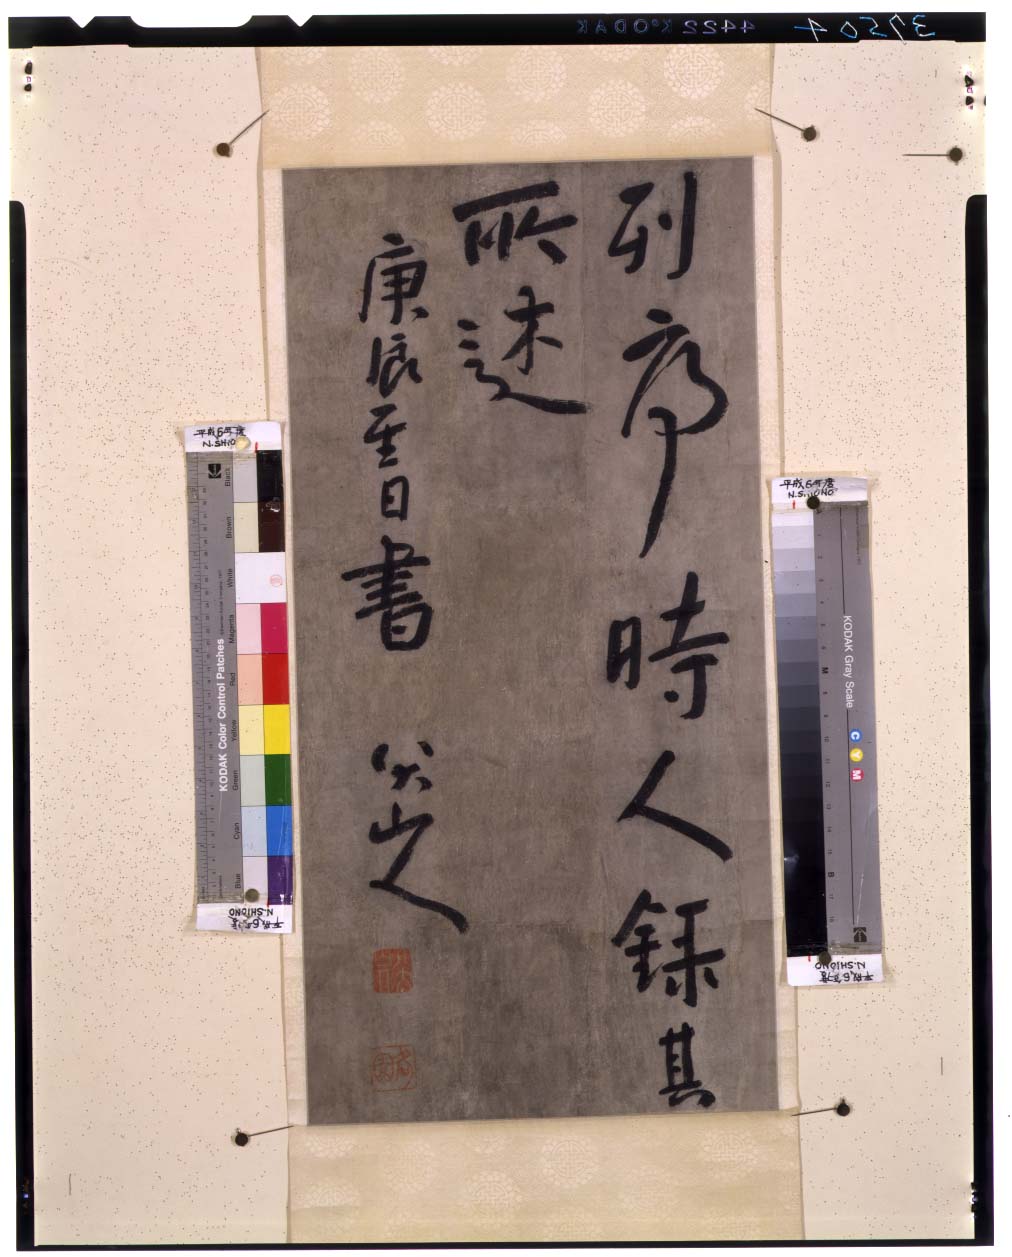 列序時人録其
所述
庚辰至日書 八大山人
平成6年度
N.SHIONO
KODAK Color Control Patches
Black
Brown
White
Magenta
Red
Yellow
Green
Cyan
Blue
N.SHIONO
平成6年度
平成6年度
N.SHIONO
KODAK Gray Scale
C Y M
M
B
N.SHIONO
平成6年度
KODAK 4422